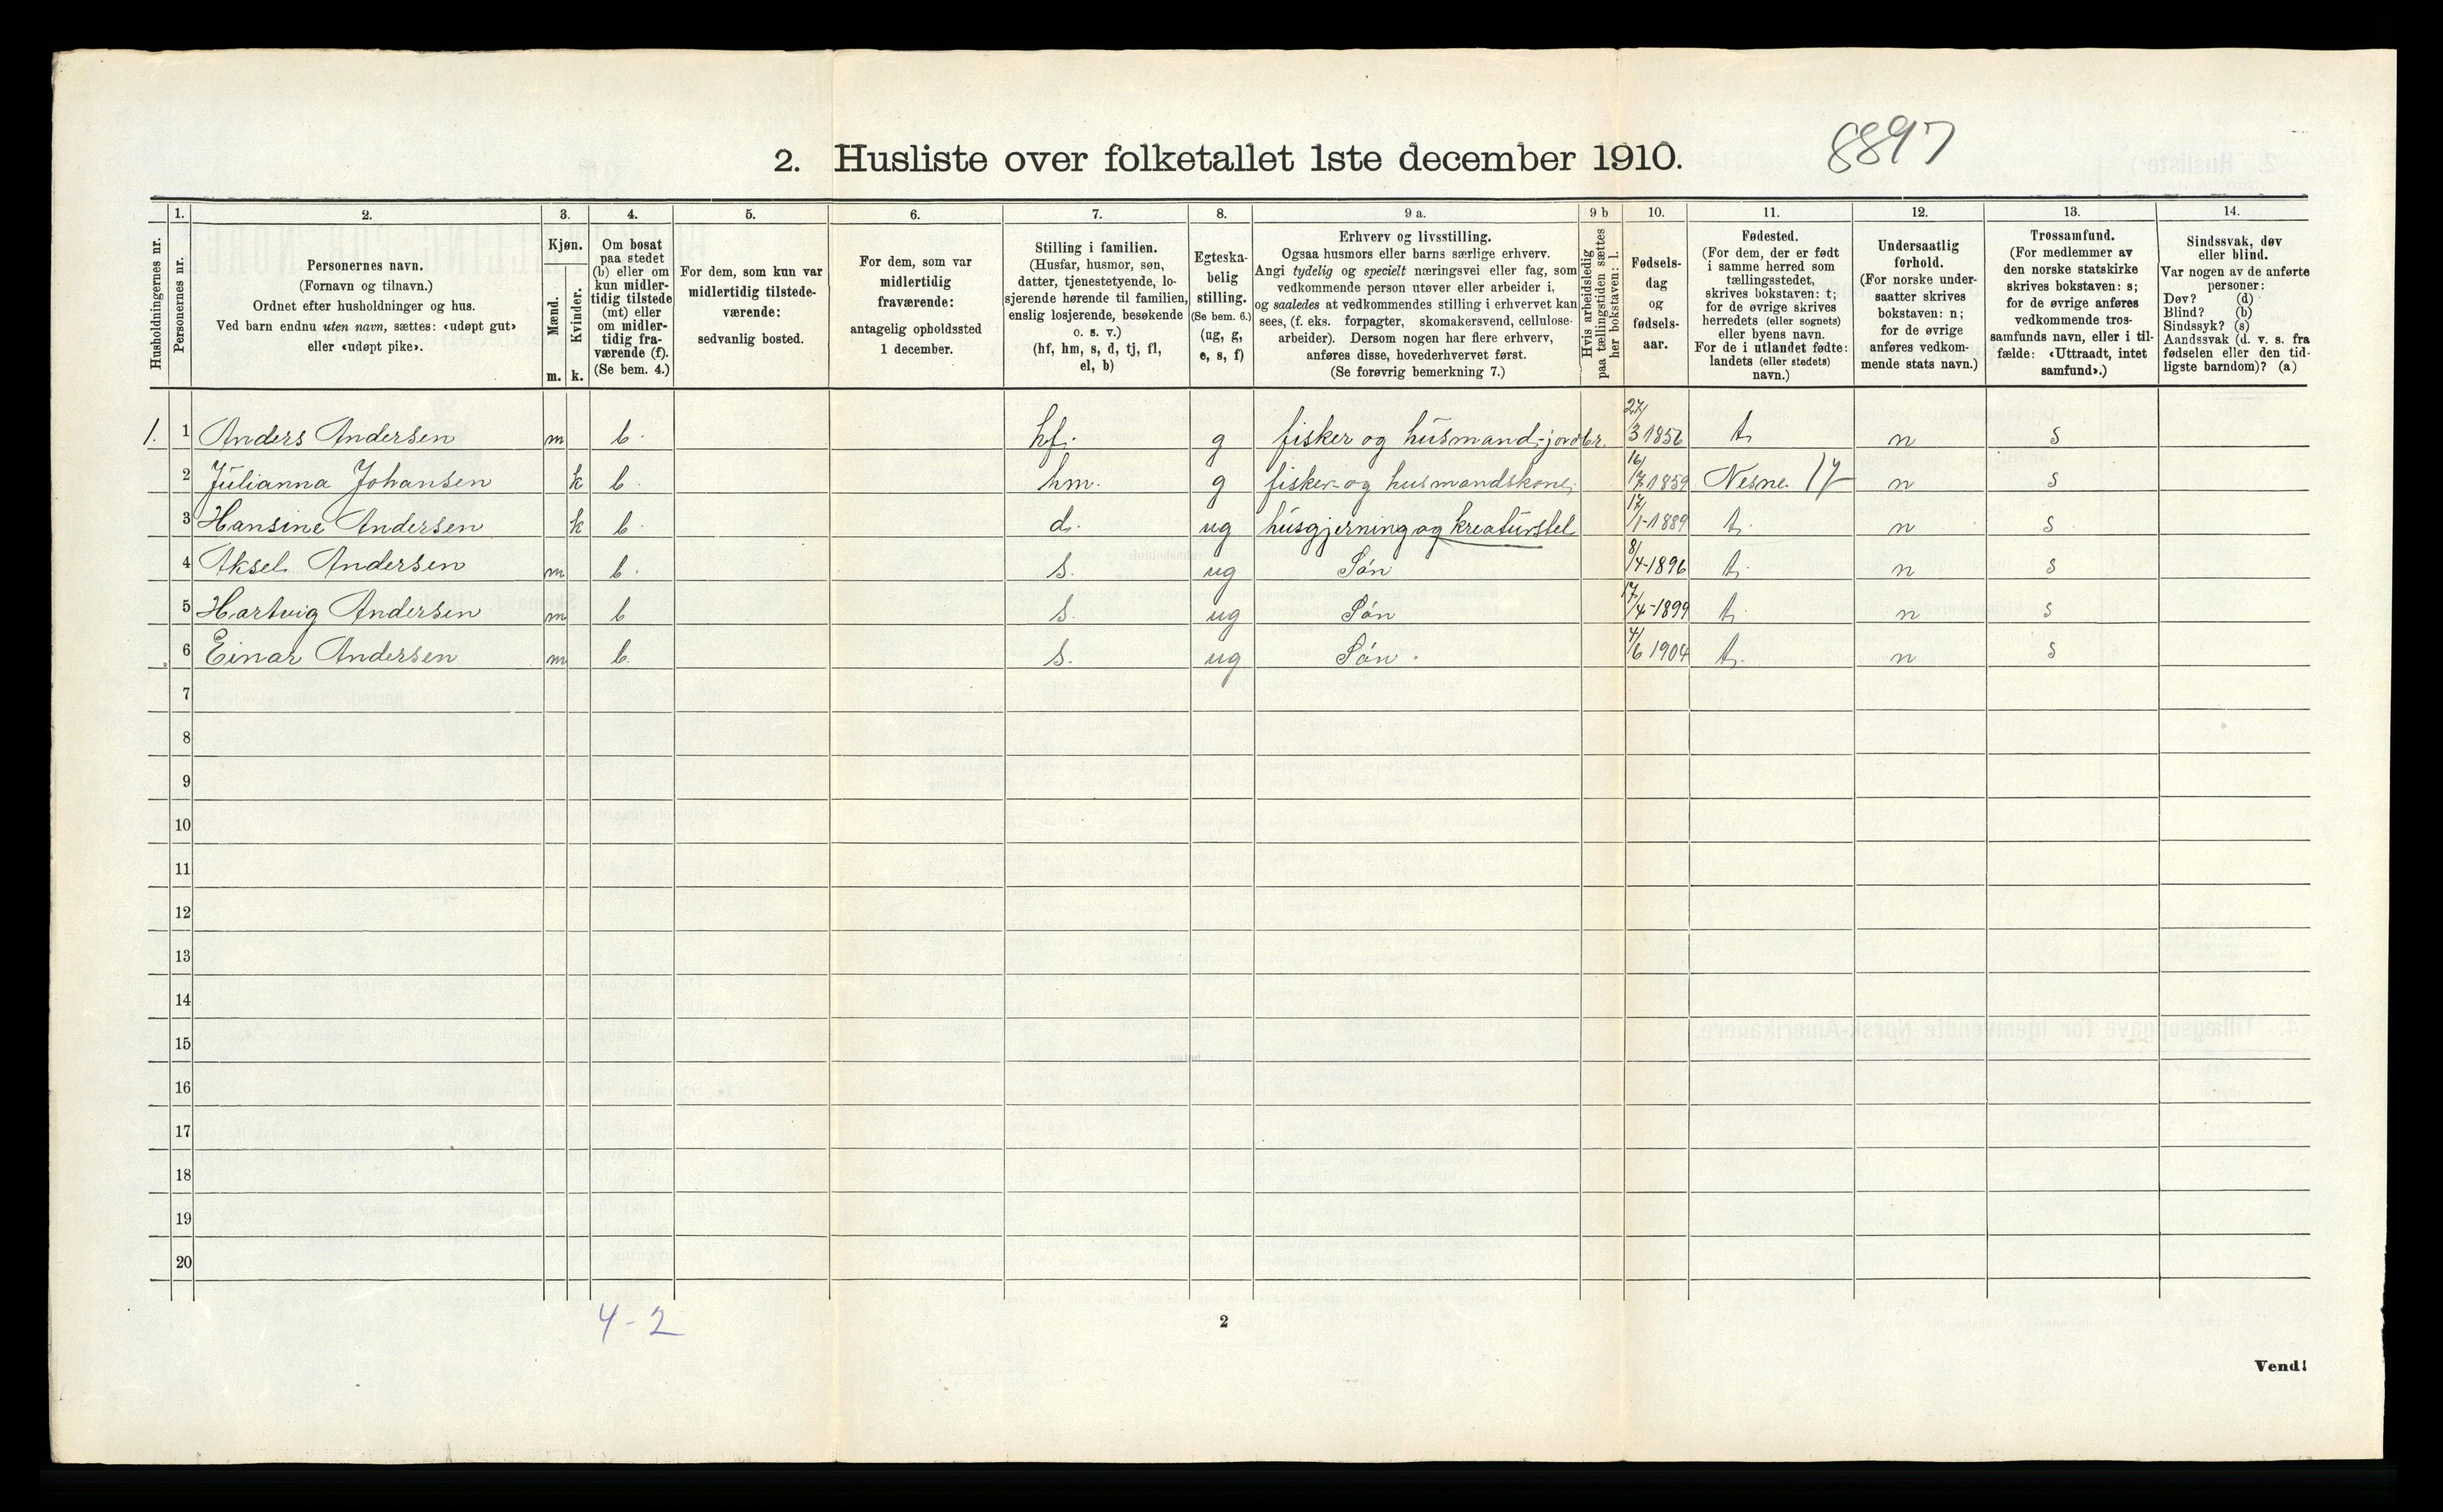 8897
2. Husliste over folketallet 1ste december 1910.
Husholdningernes nr.
1.
Personernes nr.
2.
Personernes navn.
(Fornavn og tilnavn.)
Ordnet efter husholdninger og hus.
Ved barn endnu uten navn, sættes: «udøpt gut»
eller «udøpt pike».
3.
Kjøn.
Mænd.
Kvinder.
m. k.
4.
Om bosat
paa stedet
(b) eller om
kun midler-
tidig tilstede
(mt) eller
om midler-
tidig fra-
værende (f).
(Se bem. 4.)
5.
For dem, som kun var
midlertidig tilstede-
værende:
sedvanlig bosted.
6.
For dem, som var
midlertidig
fraværende:
antagelig opholdssted
1 december.
7.
Stilling i familien.
(Husfar, husmor, søn,
datter, tjenestetyende, lo-
sjerende hørende til familien,
enslig losjerende, besøkende
o. s. v.)
(hf, hm, s, d, tj, fl,
el, b)
8.
Egteska-
belig
stilling.
(Se bem. 6.)
(ug, g,
e, s, f)
9 a.
Erhverv og livsstilling.
Ogsaa husmors eller barns særlige erhverv.
Angi tydelig og specielt næringsvei eller fag, som
vedkommende person utøver eller arbeider i,
og saaledes at vedkommendes stilling i erhvervet kan
sees, (f. eks. forpagter, skomakersvend, cellulose-
arbeider). Dersom nogen har flere erhverv,
anføres disse, hovederhvervet først.
(Se forøvrig bemerkning 7.)
9 b
Hvis arbeidsledig
paa tællingstiden sættes
her bokstaven: l.
10.
Fødsels-
dag
og
fødsels-
aar.
11.
Fødested.
(For dem, der er født
i samme herred som
tællingsstedet,
skrives bokstaven: t;
for de øvrige skrives
herredets (eller sognets)
eller byens navn.
For de i utlandet fødte:
landets (eller stedets)
navn.)
12.
Undersaatlig
forhold.
(For norske under-
saatter skrives
bokstaven: n;
for de øvrige
anføres vedkom-
mende stats navn.)
13.
Trossamfund.
(For medlemmer av
den norske statskirke
skrives bokstaven: s;
for de øvrige anføres
vedkommende tros-
samfunds navn, eller i til-
fælde: «Uttraadt, intet
samfund».)
14.
Sindssvak, døv
eller blind.
Var nogen av de anførte
personer:
Døv? (d)
Blind? (b)
Sindssyk? (s)
Aandssvak (d. v. s. fra
fødselen eller den tid-
ligste barndom)? (a)
1. 1 Anders Andersen m b. hf. g fisker og husmand-jordbr. 27/3 1856 t. n s
2 Julianna Johansen k b. hm. g fisker- og husmandskone, 16/7 1859 Nesne 17 n s
3 Hansine Andersen k b. d. ug husgjerning og kreaturstel 17/1-1889 t. n s
4 Aksel Andersen m b. s. ug Søn 8/4-1896 t. n s
5 Hartvig Andersen m b s. ug Søn 17/4-1899 t. n s
6 Einar Andersen m b. s. ug Søn. 4/6 1904 t. n s
7
8
9
10
11
12
13
14
15
16
17
18
19
20
4-2
2
Vend!